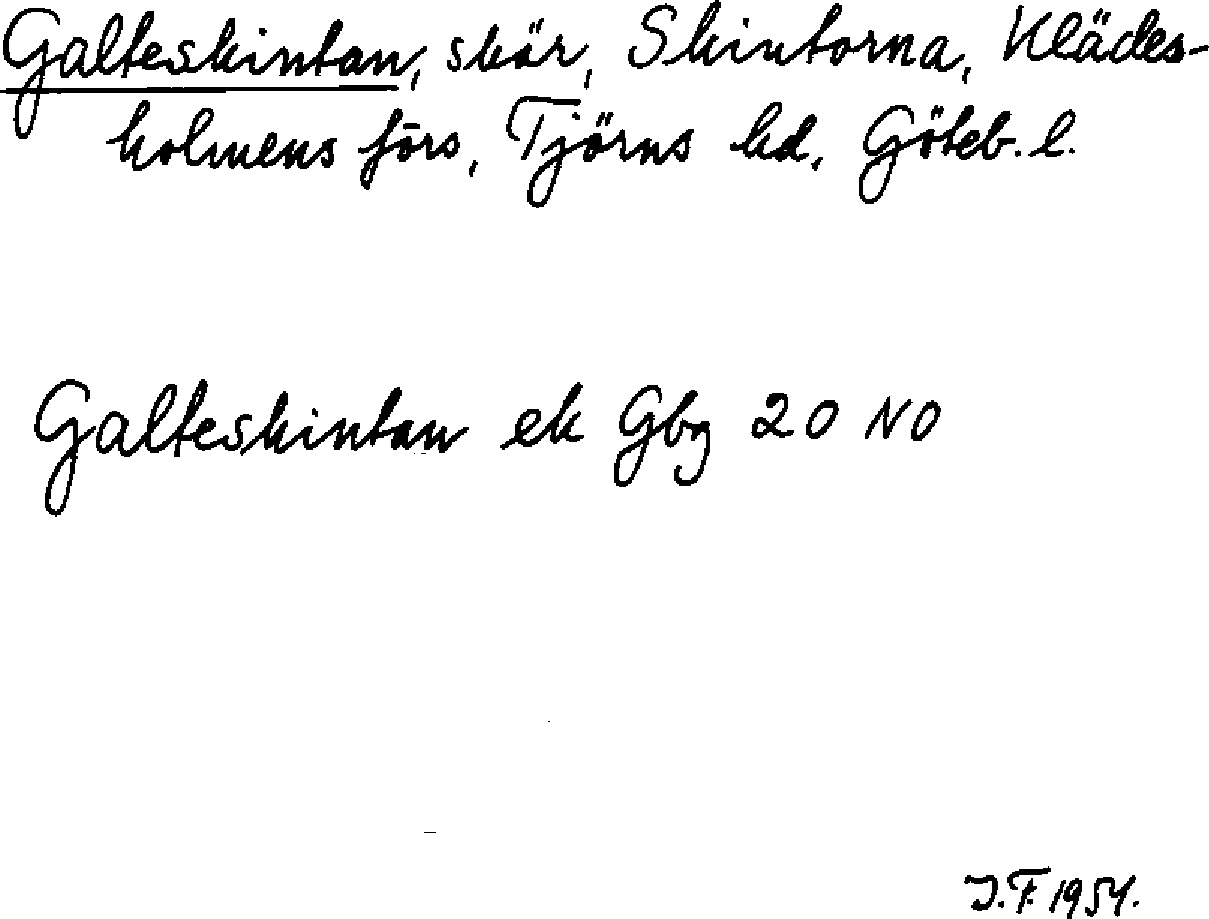 Galteskintan, skär, Skintorna, Klädes-
holmens förs, Tjörns hd, Göteb. l.
Galteskintan ek Gbg 20 NO
J.F. 1954.